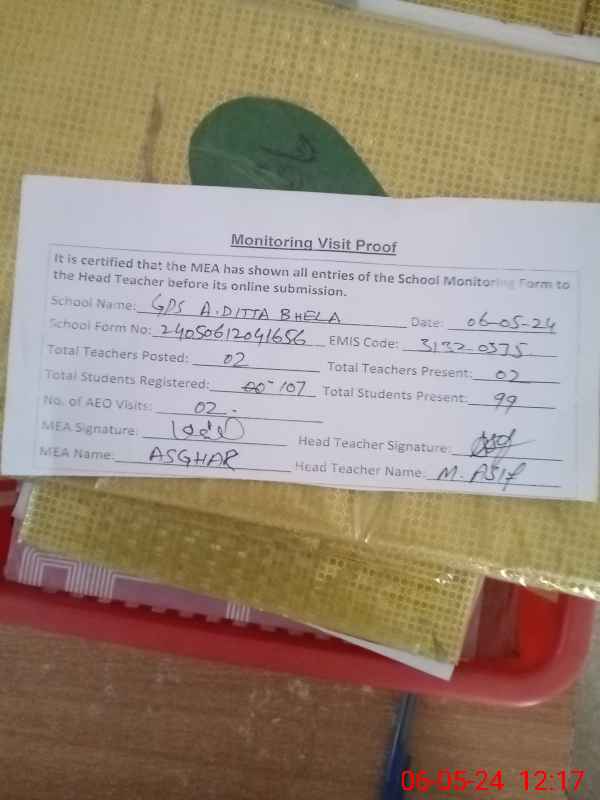 Monitoring Visit Proof
It is certified that the MEA has shown all entries of the School Monitoring Form to
the Head Teacher before its online submission.
School Name: GPS A.DITTA BHELA Date: 06-05-24
School Form No: 24050612041656 EMIS Code: 3132 0375
Total Teachers Posted: 02 Total Teachers Present: 02
Total Students Registered: 107 Total Students Present: 99
No. of AEO Visits: 02.
MEA Signature: Head Teacher Signature:
MEA Name: ASGHAR Head Teacher Name: M. ASIF
06-05-24 12:17